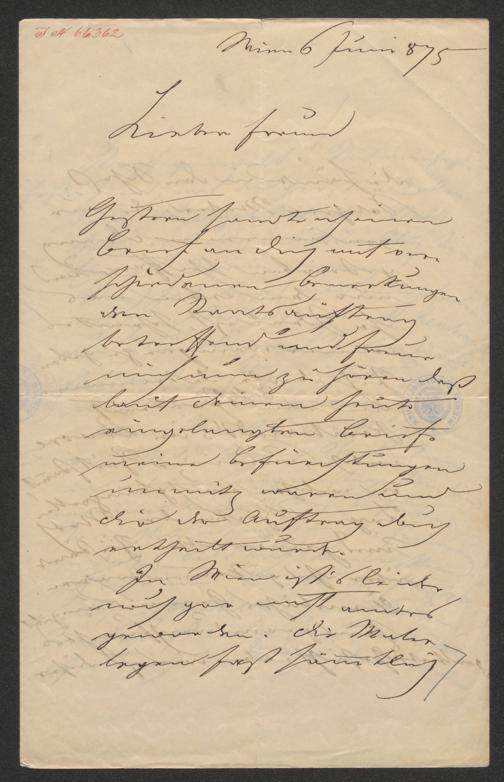 I N. 66362
Wien 6 Juni 875
Lieber Freund
Gestern sandte ich einen
Brief an dich mit ver-
schiedenen Bemerkungen
den Staatsauftrag
betreffend und freue
mich nun zu hören daß
laut deinem heut
eingelangten Briefe
meine Befürchtungen
unnütz waren und
dir der Auftrag doch
ertheilt wurde.
In Wien ist's leider
noch gar nicht anders
geworden. Die Maler
liegen fast sämtlich